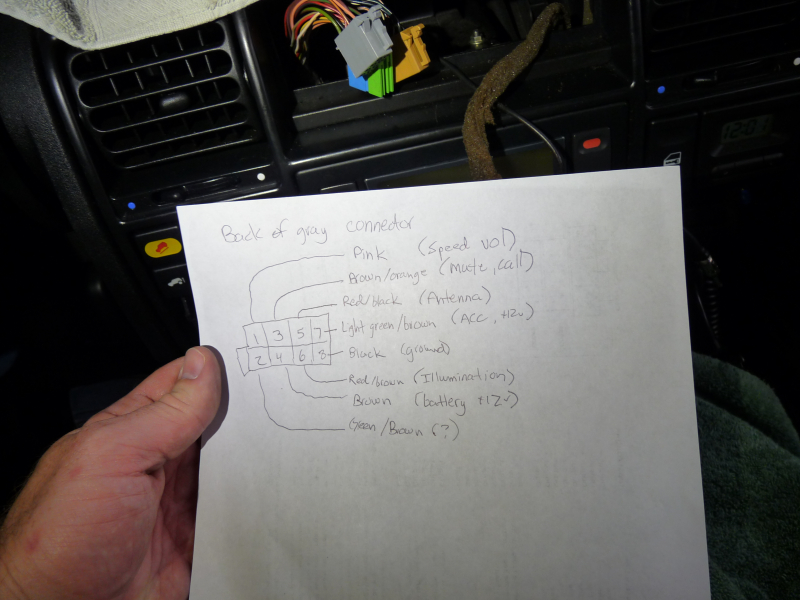 12:01
Back of gray connector
Pink (Speed vol)
Brown/orange (Mute, call)
Red/black (Antenna)
1 3 5 7 Light green/brown (Acc, +12v)
2 4 6 8 Black (ground)
Red/brown (Illumination)
Brown (battery +12v)
Green/Brown (?)